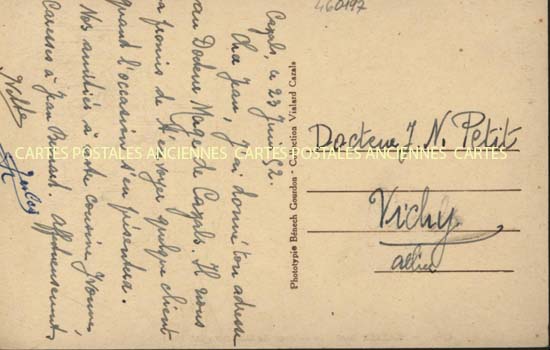 Cazals, le 23 Juin 32.
Cher Jean, J'ai donné ton adresse
au Docteur Mag de Cazals. Il nous
a promis de t'envoyer quelque client
quand l'occasion s'en présentera.
Nos amitiés à cousine Yvonne,
Caresses à Jean Affectueusement
Jules
460197
Phototypie Bénech Gourdon - Collection Vialard Cazals
Docteur J. N. Petit
Vichy
allier
CARTES POSTALES ANCIENNES CARTES POSTALES ANCIENNES CARTES POSTALES ANCIENNES